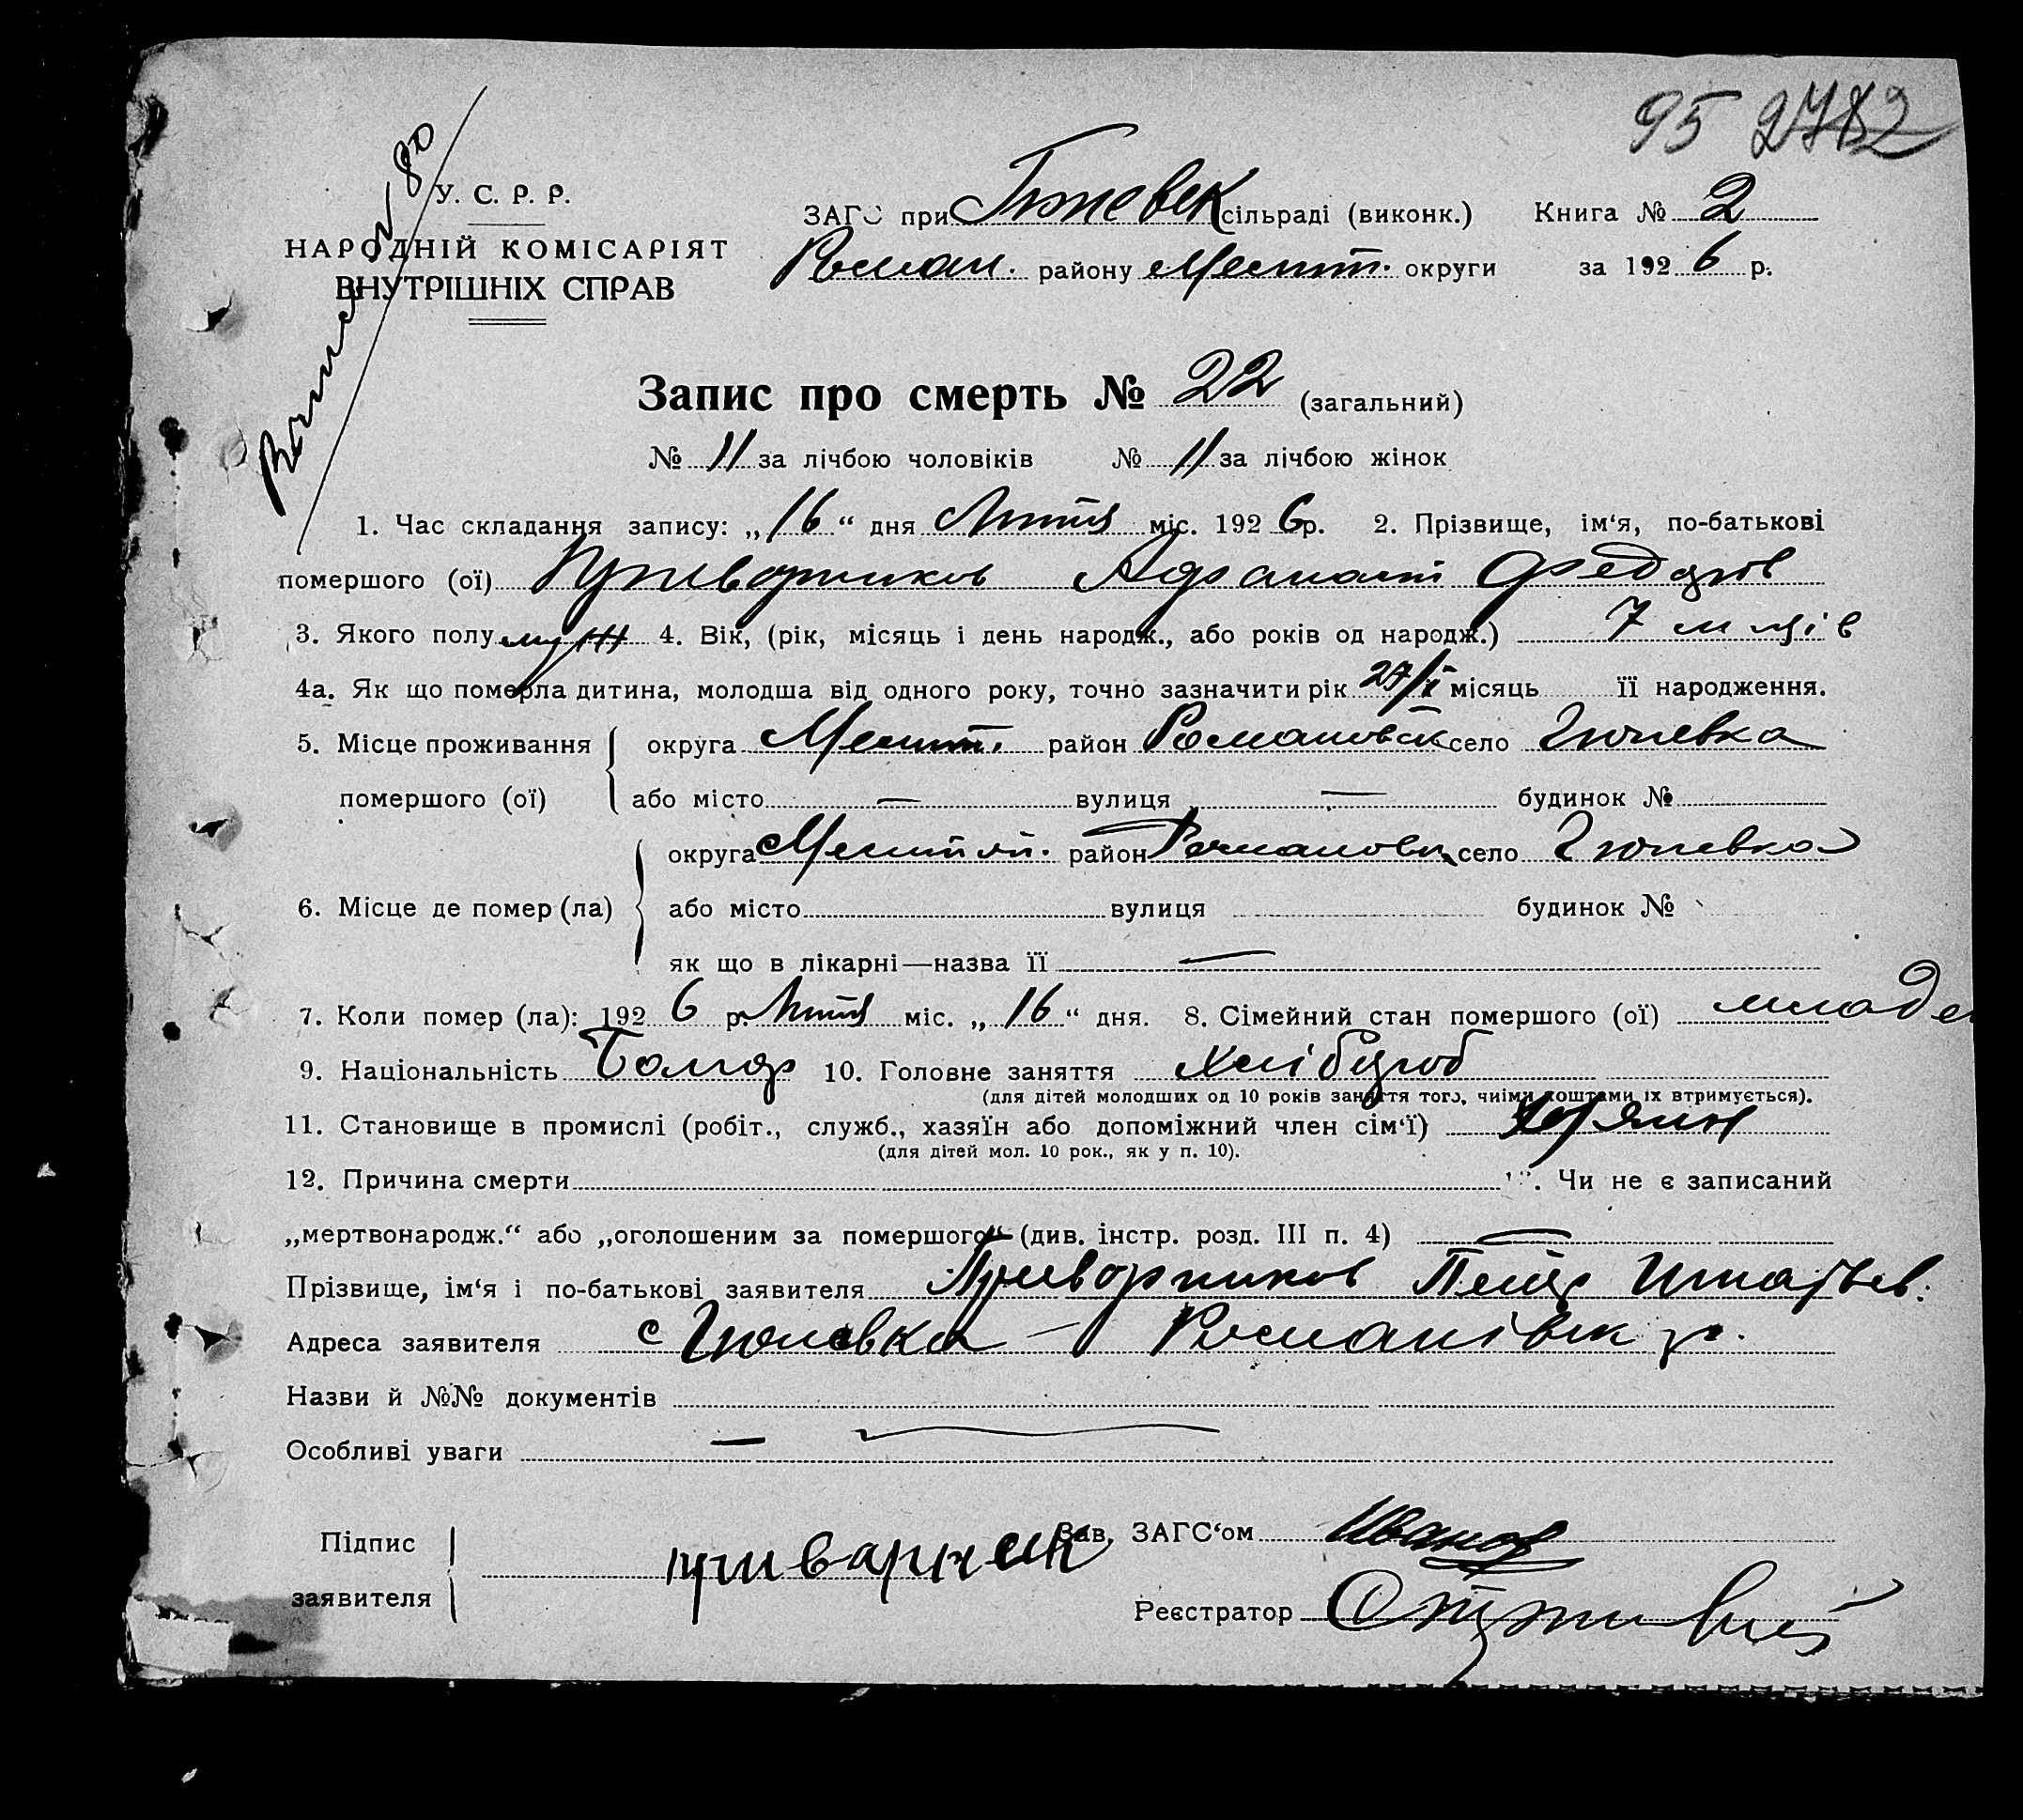 95 2782
№ 80
У. С. Р. Р.
НАРОДНІЙ КОМІСАРІЯТ
ВНУТРІШНІХ СПРАВ
ЗАГС при Гюневск сільраді (виконк.) Книга № 2
Роман. району Мелит. округи за 1926 р.
Запис про смерть № 22 (загальний)
№ 11 за лічбою чоловіків № 11 за лічбою жінок
1. Час складання запису: „16“ дня Лютня міс. 1926 р. 2. Прізвище, ім‘я, по-батькові
помершого (ої) Приворников Афанасій Федорів
3. Якого полу муж 4. Вік, (рік, місяць і день народж., або років од народж.) 7 м-ців
4а. Як що померла дитина, молодша від одного року, точно зазначити рік 27/ місяць її народження.
5. Місце проживання округа Мелит. район Романовск село Гюневка
помершого (ої) або місто — вулиця — будинок №
округа Мелитоп. район Романовск село Гюневка
6. Місце де помер (ла) або місто вулиця будинок №
як що в лікарні—назва її —
7. Коли помер (ла): 1926 р. Лютня міс. „16“ дня. 8. Сімейний стан помершого (ої) младе
9. Національність Болгар 10. Головне заняття Хлібороб
(для дітей молодших од 10 років заняття того, чиїми коштами їх втримується).
11. Становище в промислі (робіт., служб., хазяїн або допоміжний член сім‘ї) Хазяин
(для дітей мол. 10 рок., як у п. 10).
12. Причина смерти 13. Чи не є записаний
„мертвонародж.“ або „оголошеним за помершого“ (див. інстр. розд. III п. 4) —
Прізвище, ім‘я і по-батькові заявителя Приворников Петр Игнатьев.
Адреса заявителя с Гюневка — Романівск р.
Назви й №№ документів
Особливі уваги —
Підпис
заявителя
приварник
Зав. ЗАГС‘ом Иванов
Реєстратор